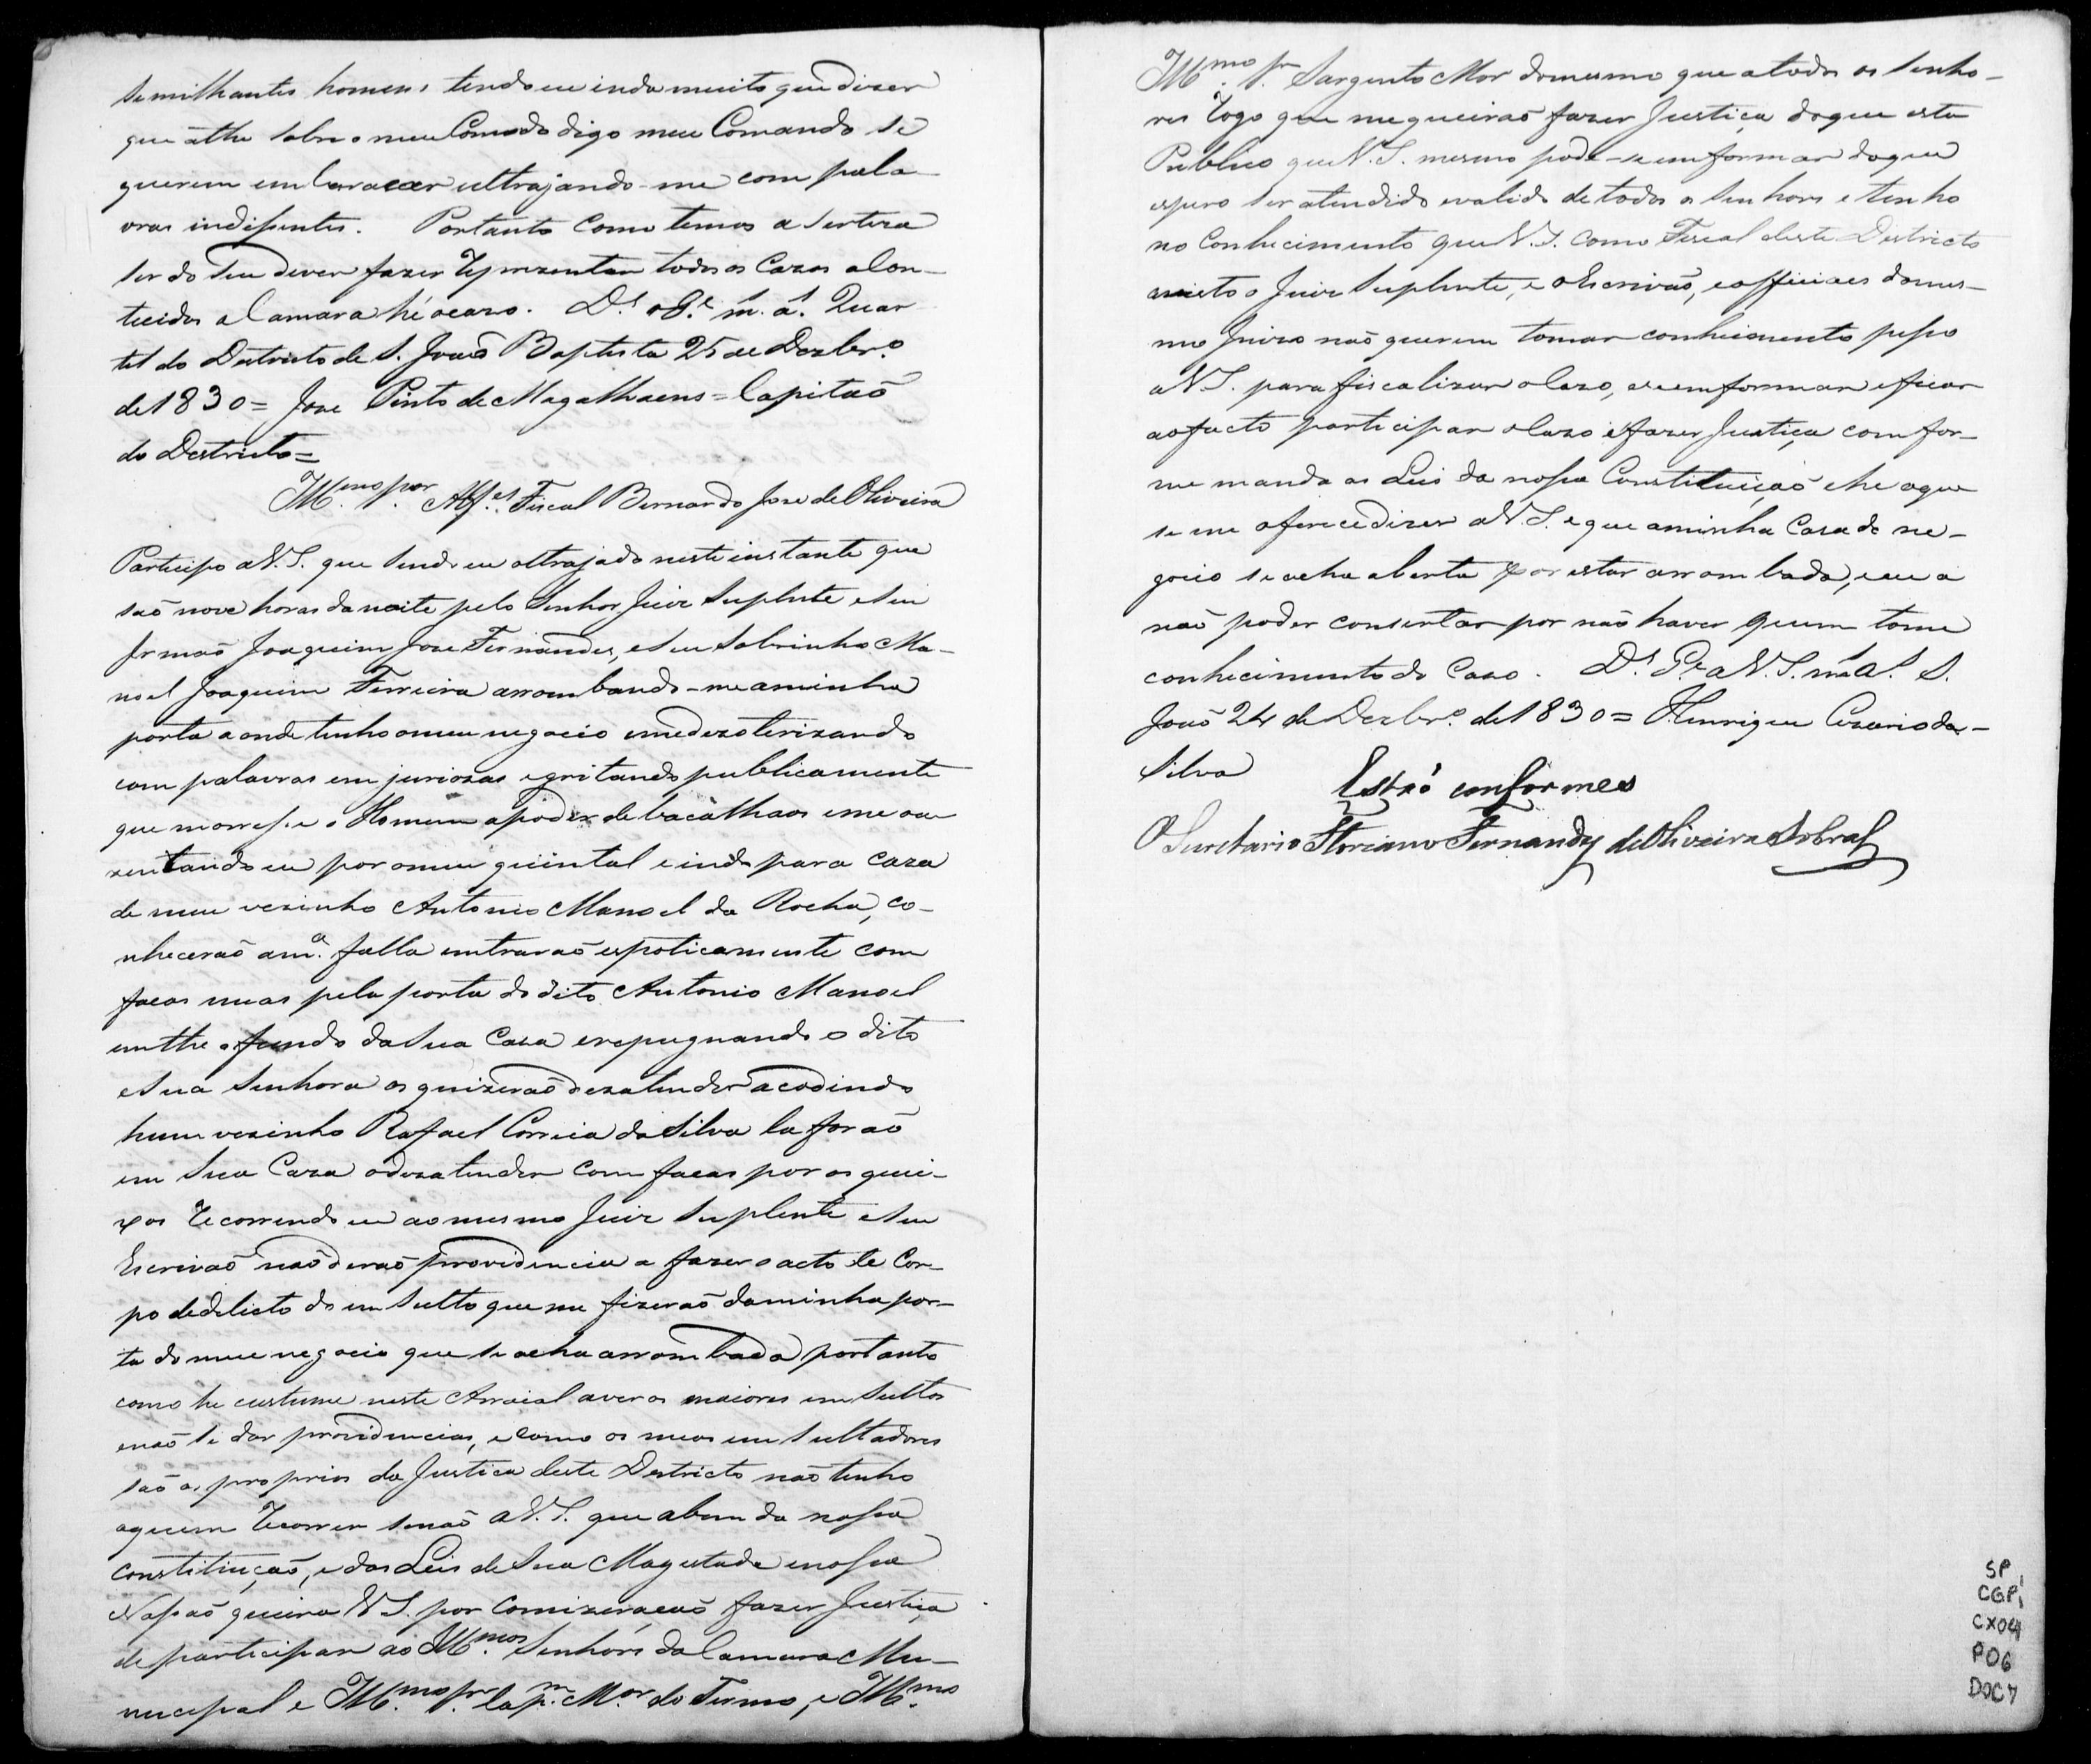 semilhantes homens tendo eu inda muito que dizer
que áthe sobre o meu Comodo digo meu Comando se
querem embaraçar ultrajando-me com pala
vras indesentes. Portanto como temos a serteza
ser do seu dever fazer representar todos os Cazos acon-
tecidos a Camara hé ocazo. D.s o G.e m. a.s Quar
tel do Destricto de S. João Baptista 25 de Dezbr.o
de 1830= Joze Pinto de Magalhaens= Capitaõ
do Destricto=
Ill.mo Snr. Alf.es Fiscal Bernardo Joze de Oliveira
Participo a V.S. que sendo eu oltrajado neste instante que
saõ nove horas da noite pelo Senhor Juiz Suplente e seu
Irmaõ Joaquim Joze Fernandes, e seu Sobrinho Ma-
noel Joaquim Ferreira arrombando-me a minha
porta aonde tenho o meu negocio e me dezoterizando
com palavras emjuriozas e gritando publicamente
que morresse o Homem a poder de bacalhaos e me au
zentando eu por o meu quintal e indo para caza
de meu vezinho Antonio Manoel da Rocha, co-
nheceraõ a m.a falla emtraraõ espoticamente com
facas nuas pela porta do dito Antonio Manoel
emthe o fundo da sua Caza e repugnando o dito
e sua Senhora os quizeraõ dezatender acodindo
hum vezinho Rafael Correia da Silva la foraõ
em sua Caza o dezatender com facas por os quei-
xos recorrendo eu ao mesmo Juiz Suplente e seu
Escrivaõ naõ deraõ providencia a fazer o acto te Cor-
po dedelicto do emsulto que me fizeraõ da minha por-
ta do meu negocio que se acha arrombada portanto
como he custume neste Arraial aver os maiores emsultos
enaõ se dar providencias, e como os meos emsultadores
saõ os proprios da Justica deste Destricto naõ tenho
aquem recorrer senaõ a V.S. que abem da nossa
constituiçaõ, e das Leis de Sua Magestade e nossa
Nasaõ queira V.S. por comizeraçaõ fazer Justiça
de participar ao Ill.mos Senhors da Camara Mu-
nucipal e Ill.mo Snr. Cap.m M.or do Termo, e Ill.mo
Ill.mo Sr. Sargento Mor domesmo que atodos os Senho-
res rogo que me queiraõ fazer Justiça doque esta
Publico que V.S. mesmo pode-se emformar doque
espero ser atendido e valido de todos os Senhors e tenho
no conhecimento que V.S. como Fiscal deste Destricto
visto o Juiz Suplente, e o Escrivaõ, e officiaes domes-
mo Juizo naõ querem tomar conhecimento pesso
a V.S. para fiscalizar o Cazo, e se emformar e ficar
aofacto participar o Cazo e fazer Justiça comfor-
me manda as Leis da nossa Constetuiçaõ e he oque
se me oferece dizer a V.S. e que aminha Caza de ne-
gocio se acha aberta por estar arrombada, e eu a
naõ poder consertar por naõ haver quem tome
conhecimento do Cazo. D.s G.e a V.S. m.s a.s S.
Joaõ 24 de Dezbr.o de 1830= Henrique Cezario da-
Silva
Estaõ conformes
O Secretario Floriano Fernandes de Oliveira Sobral
SP
CGP1
CX04
P06
DOC7